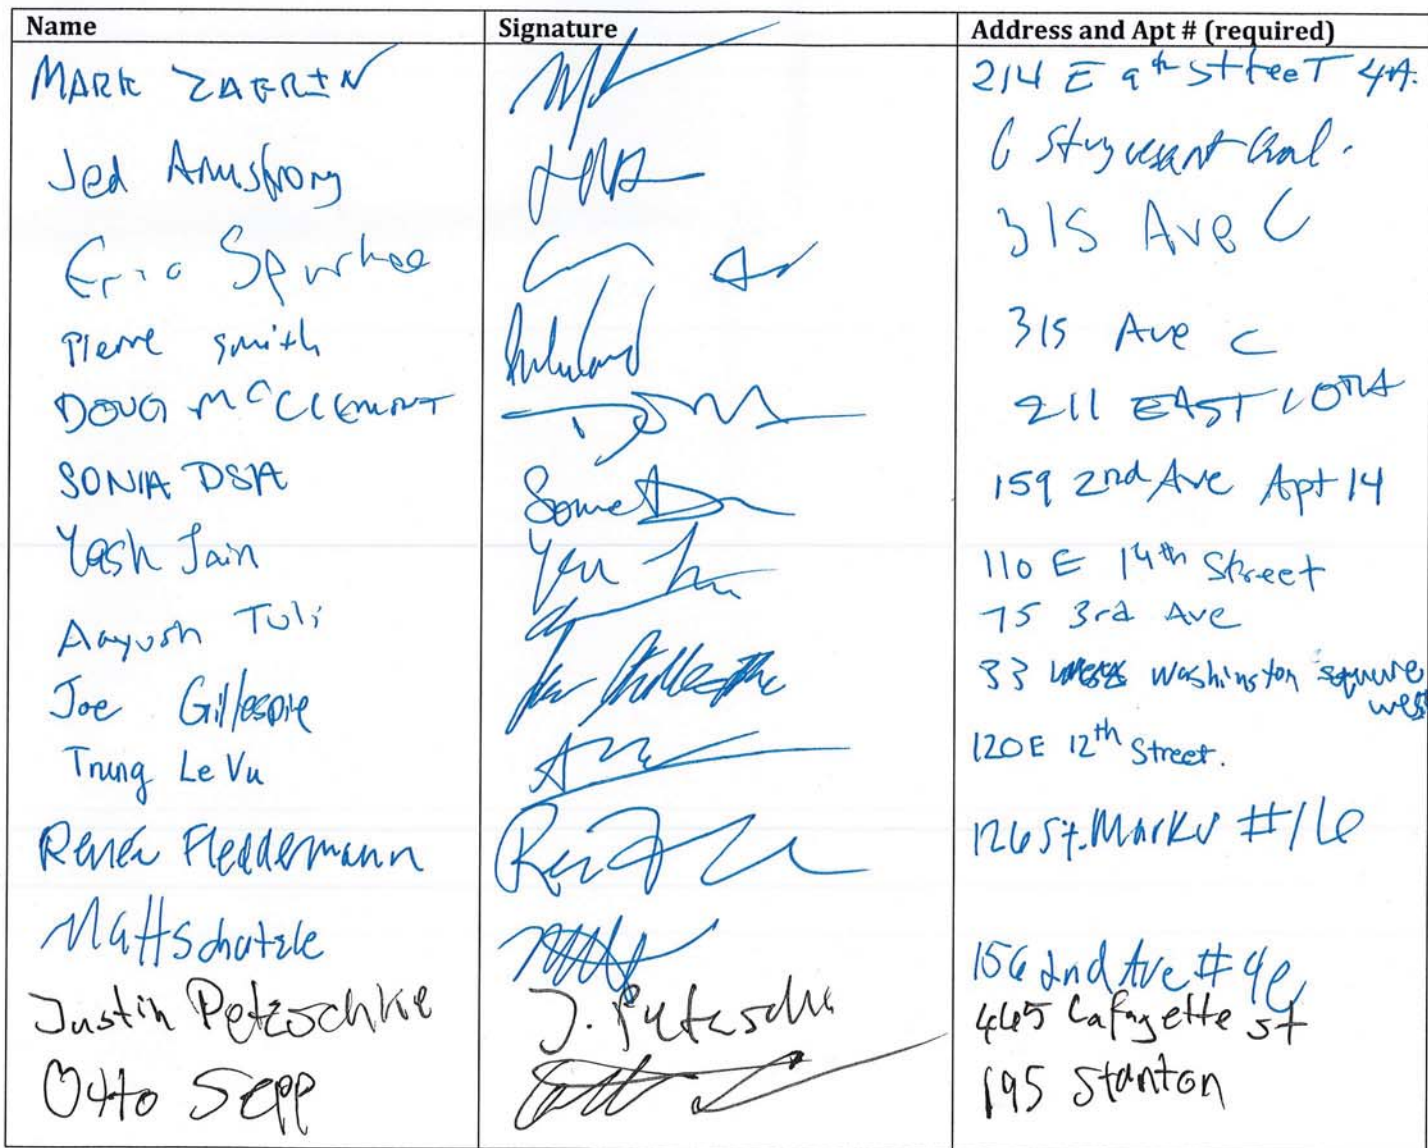 Name Signature Address and Apt # (required)
MARK ZAERIN 214 E 9th Street 4A.
Jed Armstrong 6 Stuyvesant
Eric 315 Ave C
Pierre Smith 315 Ave C
DOUG McCLEMONT 211 EAST 10TH
SONIA DSA 159 2nd Ave Apt 14
Yash Jain 110 E 14th Street
Aayush Tuli 75 3rd Ave
Joe Gillespie Joe Gillespie 33 Washington Square
west
Trung Le Vu 120 E 12th Street.
Renée Fleddermann 126 St. Marks #16
Matt Schatzle 156 2nd Ave #4e
Justin Petzschke J. 445 Lafayette st
Otto Sepp 195 Stanton